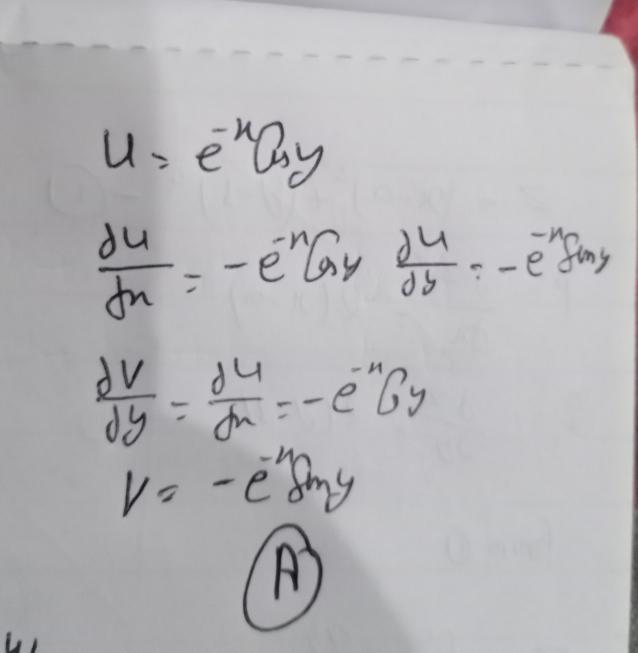 u = e^{-x} Cos y
∂u/∂x = -e^{-x} Cos y  ∂u/∂y = -e^{-x} Sin y
∂v/∂y = ∂u/∂x = -e^{-x} Cos y
V = -e^{-x} Sin y
A